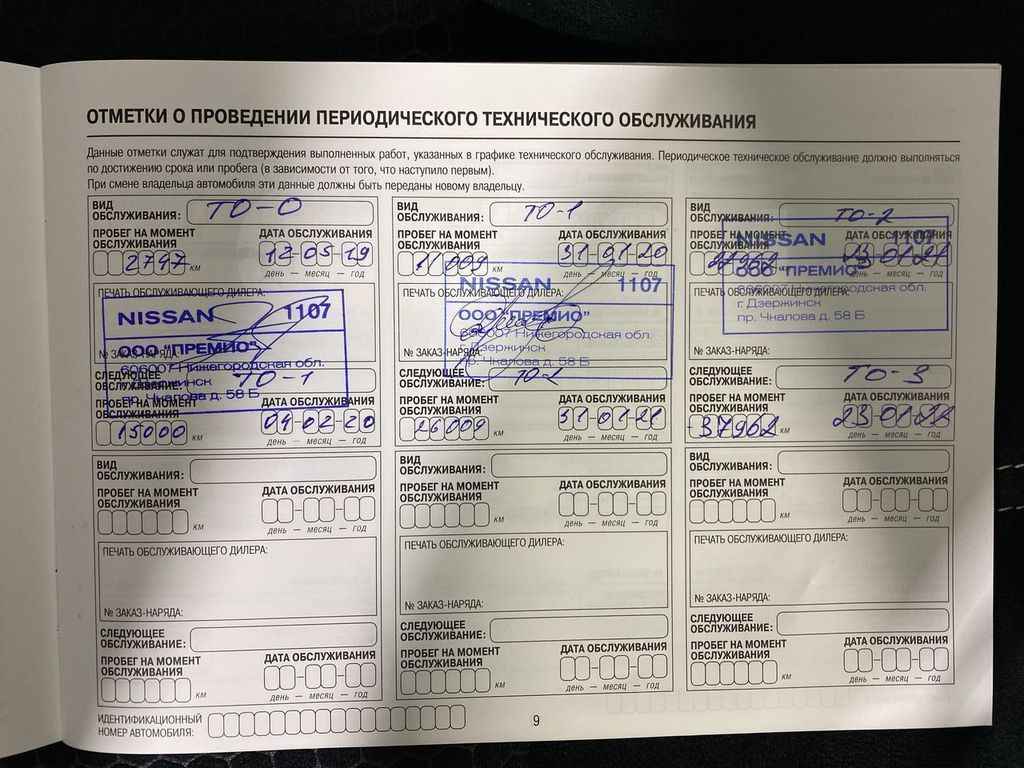 ОТМЕТКИ О ПРОВЕДЕНИИ ПЕРИОДИЧЕСКОГО ТЕХНИЧЕСКОГО ОБСЛУЖИВАНИЯ
Данные отметки служат для подтверждения выполненных работ, указанных в графике технического обслуживания. Периодическое техническое обслуживание должно выполняться
по достижению срока или пробега (в зависимости от того, что наступило первым).
При смене владельца автомобиля эти данные должны быть переданы новому владельцу.
ВИД
ОБСЛУЖИВАНИЯ: ТО-0
ПРОБЕГ НА МОМЕНТ
ОБСЛУЖИВАНИЯ
ДАТА ОБСЛУЖИВАНИЯ
2747 км
12-05-19
день — месяц — год
ПЕЧАТЬ ОБСЛУЖИВАЮЩЕГО ДИЛЕРА:
NISSAN 1107
ООО "ПРЕМИО"
606007 Нижегородская обл.
г. Дзержинск
пр. Чкалова д. 58 Б
№ ЗАКАЗ-НАРЯДА:
СЛЕДУЮЩЕЕ
ОБСЛУЖИВАНИЕ: ТО-1
ПРОБЕГ НА МОМЕНТ
ОБСЛУЖИВАНИЯ
ДАТА ОБСЛУЖИВАНИЯ
15000 км
04-02-20
день — месяц — год
ВИД
ОБСЛУЖИВАНИЯ: ТО-1
ПРОБЕГ НА МОМЕНТ
ОБСЛУЖИВАНИЯ
ДАТА ОБСЛУЖИВАНИЯ
11009 км
31-01-20
день — месяц — год
ПЕЧАТЬ ОБСЛУЖИВАЮЩЕГО ДИЛЕРА:
NISSAN 1107
ООО "ПРЕМИО"
606007 Нижегородская обл.
г. Дзержинск
пр. Чкалова д. 58 Б
№ ЗАКАЗ-НАРЯДА:
СЛЕДУЮЩЕЕ
ОБСЛУЖИВАНИЕ: ТО-2
ПРОБЕГ НА МОМЕНТ
ОБСЛУЖИВАНИЯ
ДАТА ОБСЛУЖИВАНИЯ
26009 км
31-01-21
день — месяц — год
ВИД
ОБСЛУЖИВАНИЯ: ТО-2
ПРОБЕГ НА МОМЕНТ
ОБСЛУЖИВАНИЯ
ДАТА ОБСЛУЖИВАНИЯ
день — месяц — год
ПЕЧАТЬ ОБСЛУЖИВАЮЩЕГО ДИЛЕРА:
NISSAN 1107
ООО "ПРЕМИО"
606007 Нижегородская обл.
г. Дзержинск
пр. Чкалова д. 58 Б
№ ЗАКАЗ-НАРЯДА:
СЛЕДУЮЩЕЕ
ОБСЛУЖИВАНИЕ: ТО-3
ПРОБЕГ НА МОМЕНТ
ОБСЛУЖИВАНИЯ
ДАТА ОБСЛУЖИВАНИЯ
37962 км
день — месяц — год
ВИД
ОБСЛУЖИВАНИЯ:
ПРОБЕГ НА МОМЕНТ
ОБСЛУЖИВАНИЯ
ДАТА ОБСЛУЖИВАНИЯ
км
день — месяц — год
ПЕЧАТЬ ОБСЛУЖИВАЮЩЕГО ДИЛЕРА:
№ ЗАКАЗ-НАРЯДА:
СЛЕДУЮЩЕЕ
ОБСЛУЖИВАНИЕ:
ПРОБЕГ НА МОМЕНТ
ОБСЛУЖИВАНИЯ
ДАТА ОБСЛУЖИВАНИЯ
км
день — месяц — год
ВИД
ОБСЛУЖИВАНИЯ:
ПРОБЕГ НА МОМЕНТ
ОБСЛУЖИВАНИЯ
ДАТА ОБСЛУЖИВАНИЯ
км
день — месяц — год
ПЕЧАТЬ ОБСЛУЖИВАЮЩЕГО ДИЛЕРА:
№ ЗАКАЗ-НАРЯДА:
СЛЕДУЮЩЕЕ
ОБСЛУЖИВАНИЕ:
ПРОБЕГ НА МОМЕНТ
ОБСЛУЖИВАНИЯ
ДАТА ОБСЛУЖИВАНИЯ
км
день — месяц — год
ВИД
ОБСЛУЖИВАНИЯ:
ПРОБЕГ НА МОМЕНТ
ОБСЛУЖИВАНИЯ
ДАТА ОБСЛУЖИВАНИЯ
км
день — месяц — год
ПЕЧАТЬ ОБСЛУЖИВАЮЩЕГО ДИЛЕРА:
№ ЗАКАЗ-НАРЯДА:
СЛЕДУЮЩЕЕ
ОБСЛУЖИВАНИЕ:
ПРОБЕГ НА МОМЕНТ
ОБСЛУЖИВАНИЯ
ДАТА ОБСЛУЖИВАНИЯ
км
день — месяц — год
ИДЕНТИФИКАЦИОННЫЙ
НОМЕР АВТОМОБИЛЯ:
9